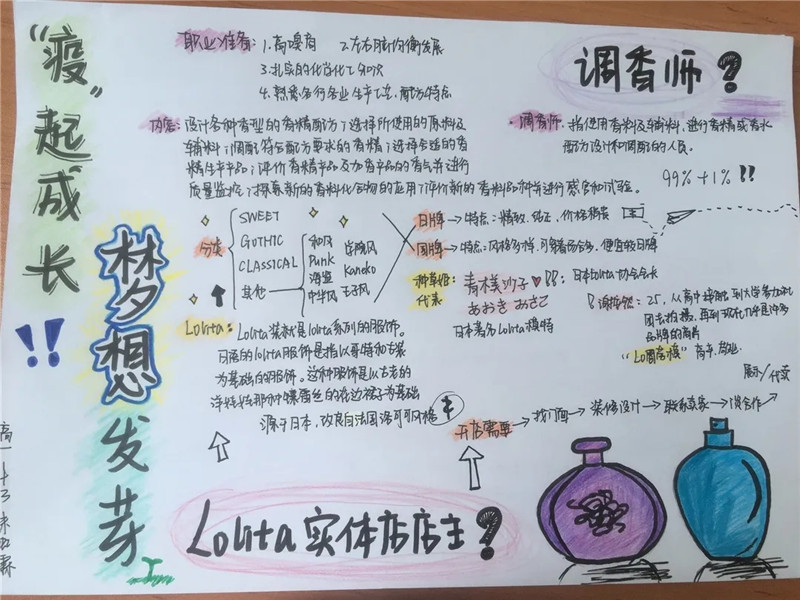 "疫"起成长!!
梦想发芽
调香师?
职业准备:1.高嗅商 2.左右脑均衡发展
3.扎实的化学化工知识
4.熟悉各行各业生产工艺,配方特点
内容:设计各种香型的香精配方;选择所使用的原料及
辅料;调配符合配方要求的香精;选择合适的香
精生产产品;评价香精产品及加香产品的香气并进行
质量监控;探索新的香料化合物的应用;评价新的香料品种并进行感官和试验。
调香师:指使用香料及辅料,进行香精或香水
配方设计和调配的人员。
99%+1%!!
分类
SWEET
GOTHIC
CLASSICAL
其他
和风
Punk
海盗
中华风
军服风
Kaneko
王子风
日牌→特点:精致、纯正、价格稍贵
国牌→特点:风格多样,可驾驭场合多,便宜较日牌
种草姬:
代表
青木美沙子
あおき みさこ
日本著名Lolita模特
日本Lolita协会会长
Lolita:Lolita装就是lolita系列的服饰。
日语的lolita服饰是指以哥特和古装
为基础的服饰。这种服饰是以古老的
洋娃娃那种蝶蕾丝的花边裙子为基础
源于日本,改良自法国洛可可风格
25,从高中接触到大学参加社
团去拍摄,再到现在几年是许多
品牌的商务
开店需要→找门面→装修设计→联系卖家→谈合作
Lolita实体店店主?
高一十三